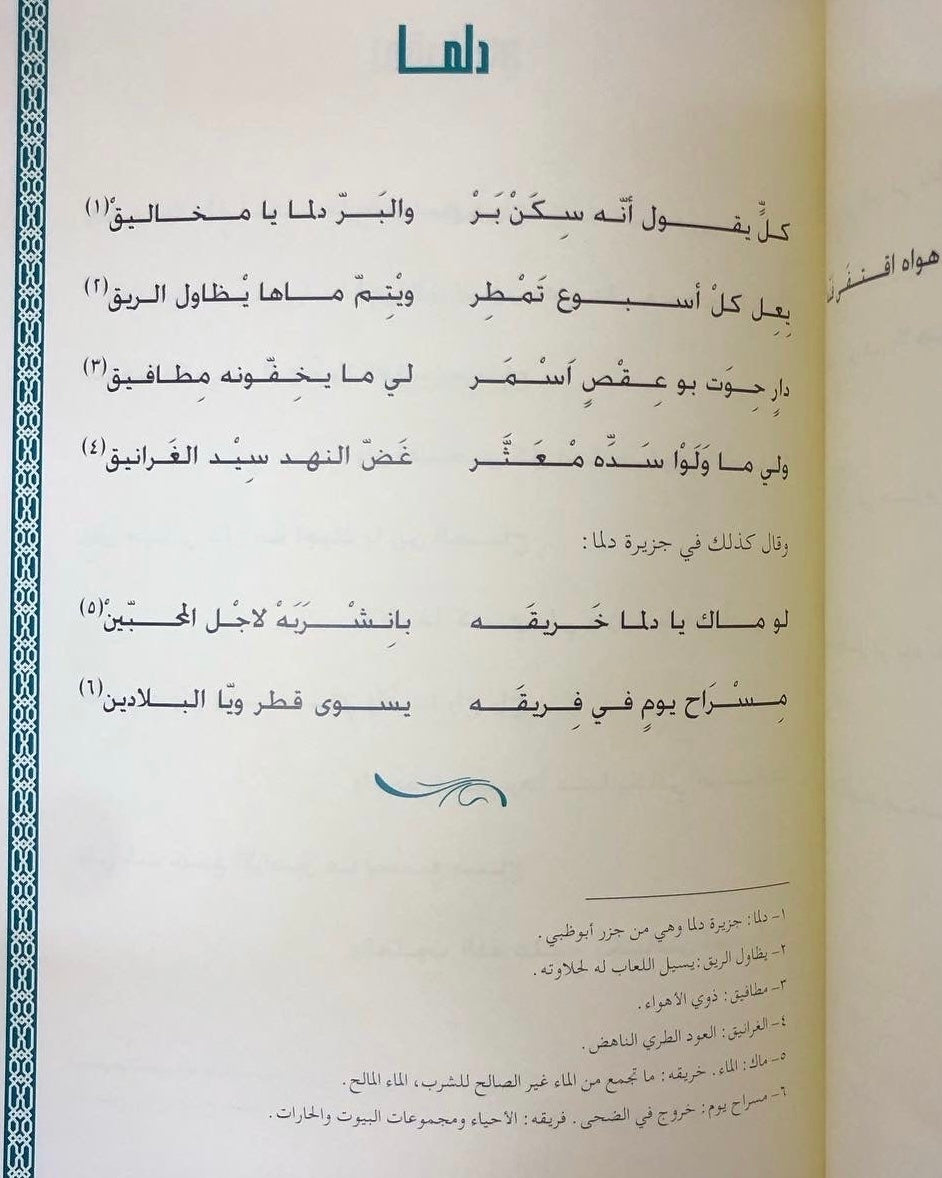 دلما
كلٍّ يقول أنّه سِكَنْ بَرْ والبَرّ دلما يا مخاليقْ(١)
يِعِل كلْ أسبوع تَمْطِر ويْتِمّ ماها يْظاول الريق(٢)
دارٍ حِوَت بو عِقْصٍ اَسْمَر لي ما يخِفّونه مِطافيق(٣)
ولي ما وَلَوْا سَدّه مْعَثَّر غَضّ النهد سِيْد الغَرانيق(٤)
وقال كذلك في جزيرة دلما:
لو ماك يا دلما خَريقَه بانِشْرَبَهْ لاجْل المحبّينْ(٥)
مِسْرَاح يومٍ في فِريقَه يسوى قطر ويّا البلادين(٦)
١- دلما: جزيرة دلما وهي من جزر أبوظبي.
٢- يظاول الريق: يسيل اللعاب له لحلاوته.
٣- مطافيق: ذوي الأهواء.
٤- الغرانيق: العود الطري الناهض.
٥- ماك: الماء. خريقه: ما تجمع من الماء غير الصالح للشرب، الماء المالح.
٦- مسراح يوم: خروج في الضحى. فريقه: الأحياء ومجموعات البيوت والحارات.
هواه